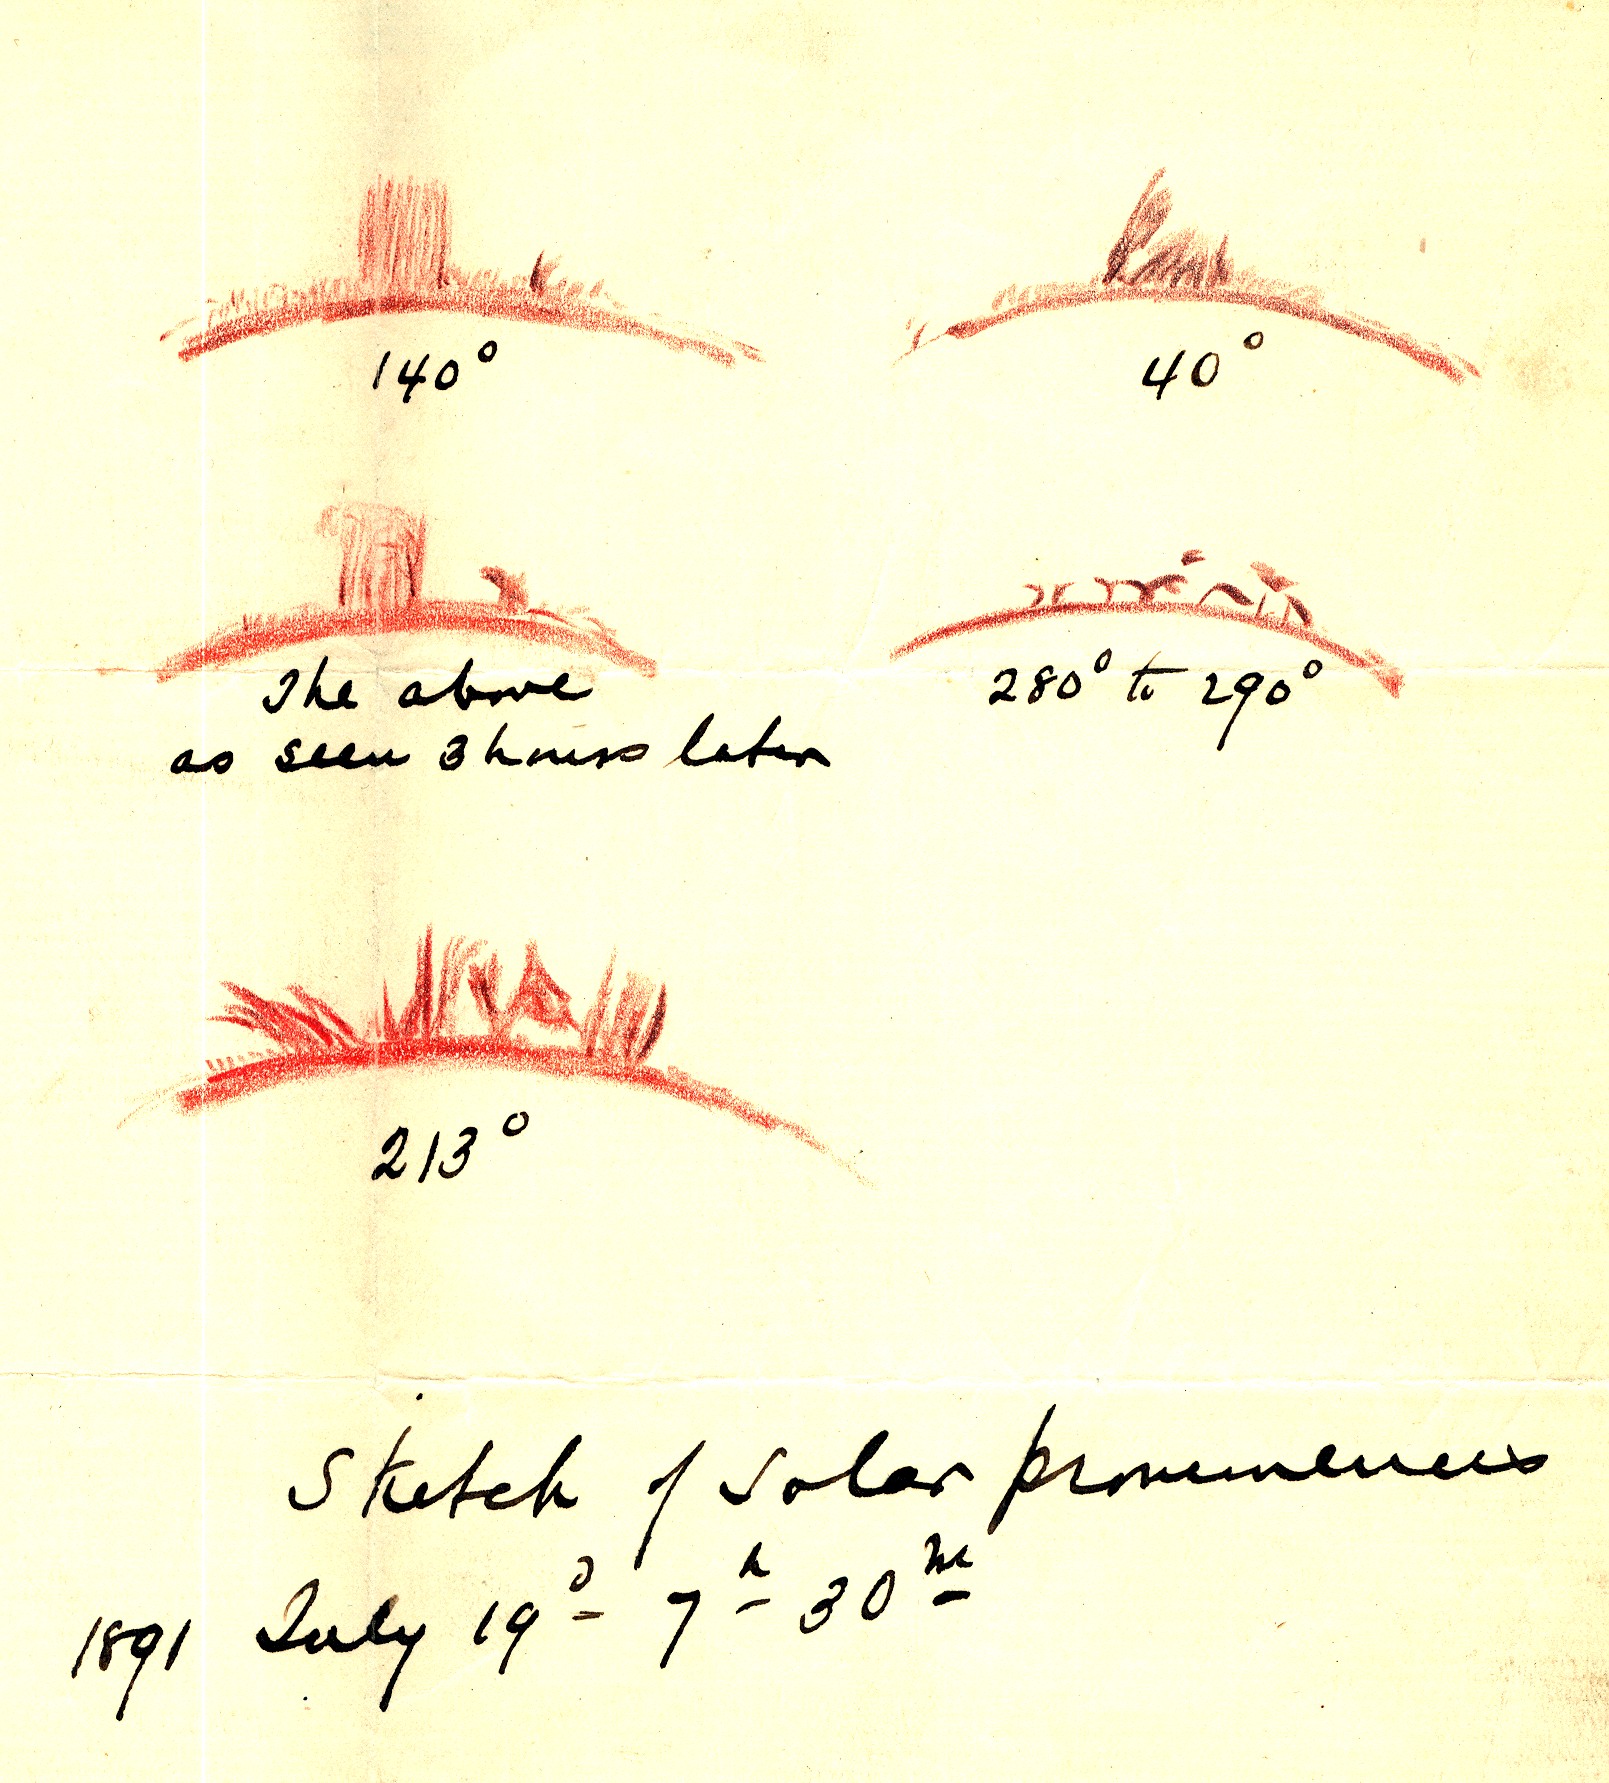 140°
40°
The above
as seen 3 hours later
280° to 290°
213°
Sketch of Solar prominences
1891 July 19d 7h 30m